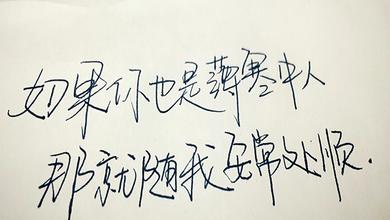 如果你也是薄寒中人
那就随我安常处顺.